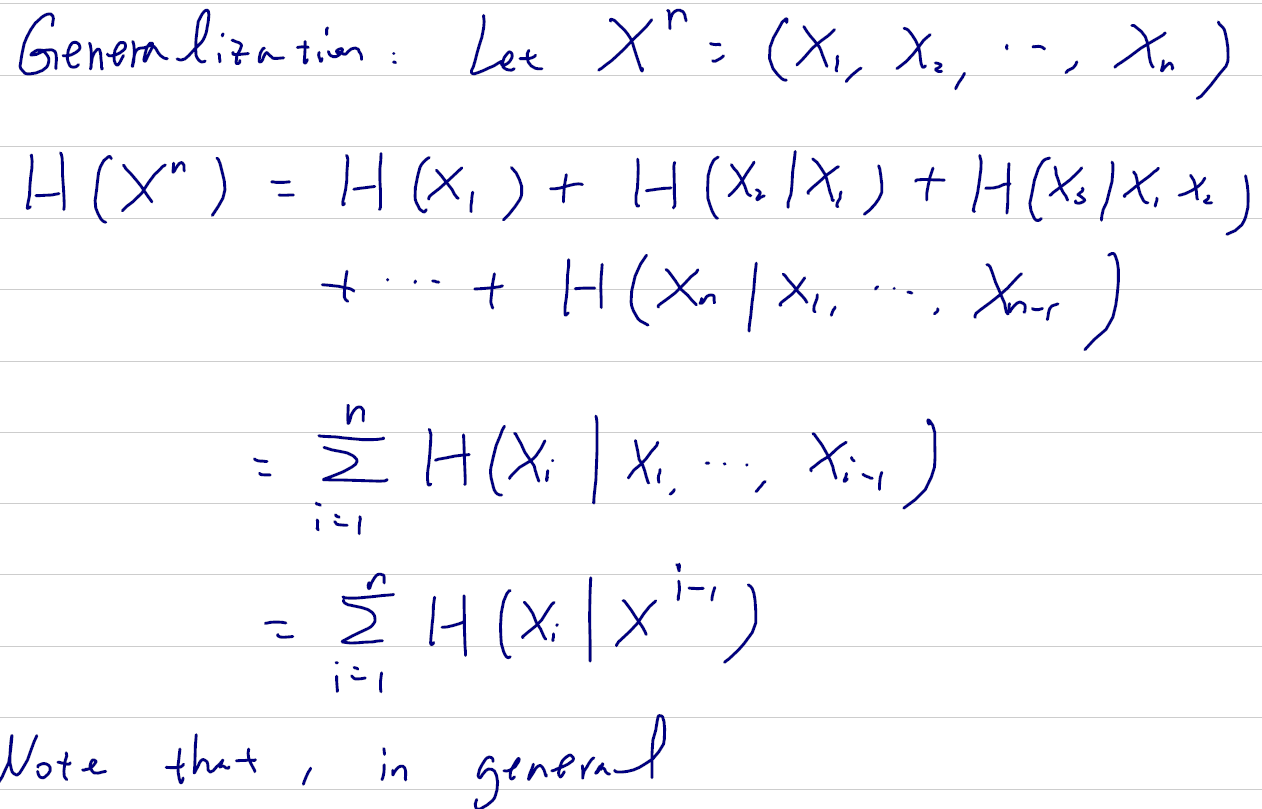 Generalization: Let Xⁿ = (X₁, X₂, ..., Xₙ)
H(Xⁿ) = H(X₁) + H(X₂|X₁) + H(X₃|X₁ X₂)
+ ... + H(Xₙ|X₁, ..., Xₙ₋₁)
= Σᵢ₌₁ⁿ H(Xᵢ|X₁, ..., Xᵢ₋₁)
= Σᵢ₌₁ⁿ H(Xᵢ|Xⁱ⁻¹)
Note that, in general